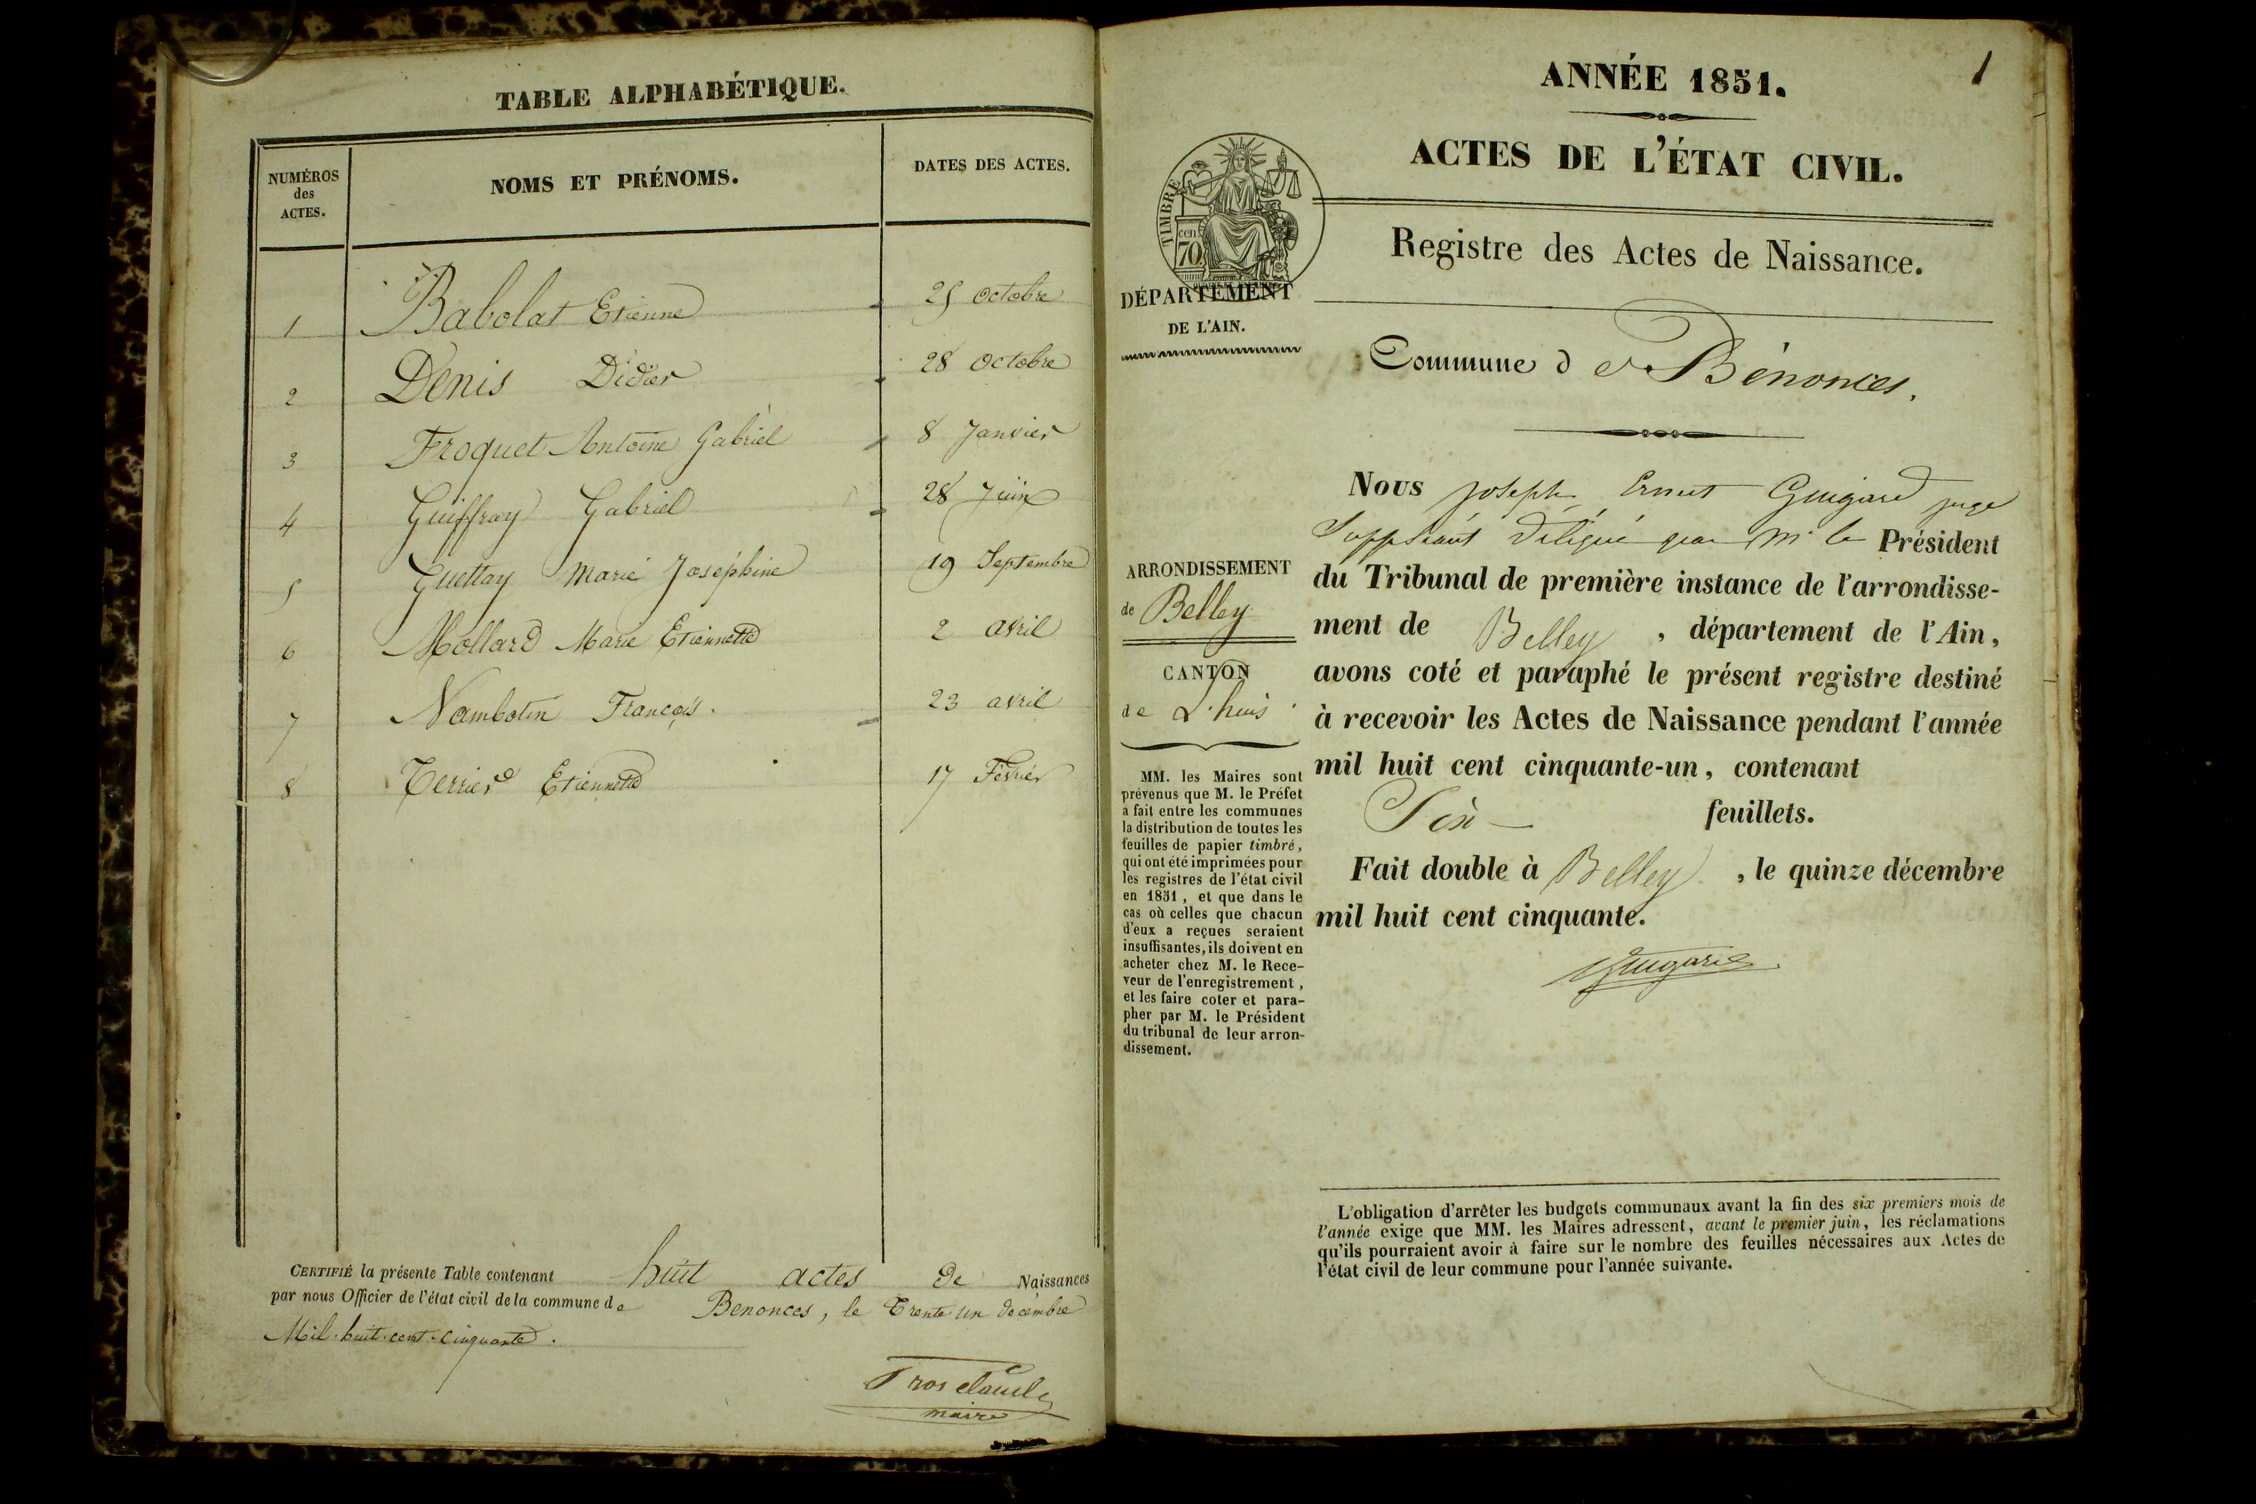 TABLE ALPHABÉTIQUE.
NUMÉROS
des
ACTES.
NOMS ET PRÉNOMS.
DATES DES ACTES.
1 Babolat Etienne 25 octobre
2 Denis Didier 28 octobre
3 Froquet Antoine Gabriel 8 Janvier
4 Guiffray Gabriel 28 Juin
5 Guettay Marie Joséphine 19 Septembre
6 Mollard Marie Etiennette 2 avril
7 Nambotin François. 23 avril
8 Terrier Etiennette 17 Février
CERTIFIÉ la présente Table contenant huit actes de Naissances
par nous Officier de l'état civil de la commune de Benonces, le Trente un décembre
Mil-huit-cent-cinquante.
maire
1
ANNÉE 1851.
ACTES DE L'ÉTAT CIVIL.
Registre des Actes de Naissance.
TIMBRE
cen.
70
DÉPARTEMENT
DE L'AIN.
Commune de Bénonces.
ARRONDISSEMENT
de Belley
CANTON
de L'huis
MM. les Maires sont
prévenus que M. le Préfet
a fait entre les communes
la distribution de toutes les
feuilles de papier timbré,
qui ont été imprimées pour
les registres de l'état civil
en 1851, et que dans le
cas où celles que chacun
d'eux a reçues seraient
insuffisantes, ils doivent en
acheter chez M. le Rece-
veur de l'enregistrement,
et les faire coter et para-
pher par M. le Président
du tribunal de leur arron-
dissement.
Nous Joseph Ernest Guigard juge
Suppléant délégué par Mr le Président
du Tribunal de première instance de l'arrondisse-
ment de Belley, département de l'Ain,
avons coté et paraphé le présent registre destiné
à recevoir les Actes de Naissance pendant l'année
mil huit cent cinquante-un, contenant
Six feuillets.
Fait double à Belley, le quinze décembre
mil huit cent cinquante.
Guigard
L'obligation d'arrêter les budgets communaux avant la fin des six premiers mois de
l'année exige que MM. les Maires adressent, avant le premier juin, les réclamations
qu'ils pourraient avoir à faire sur le nombre des feuilles nécessaires aux Actes de
l'état civil de leur commune pour l'année suivante.